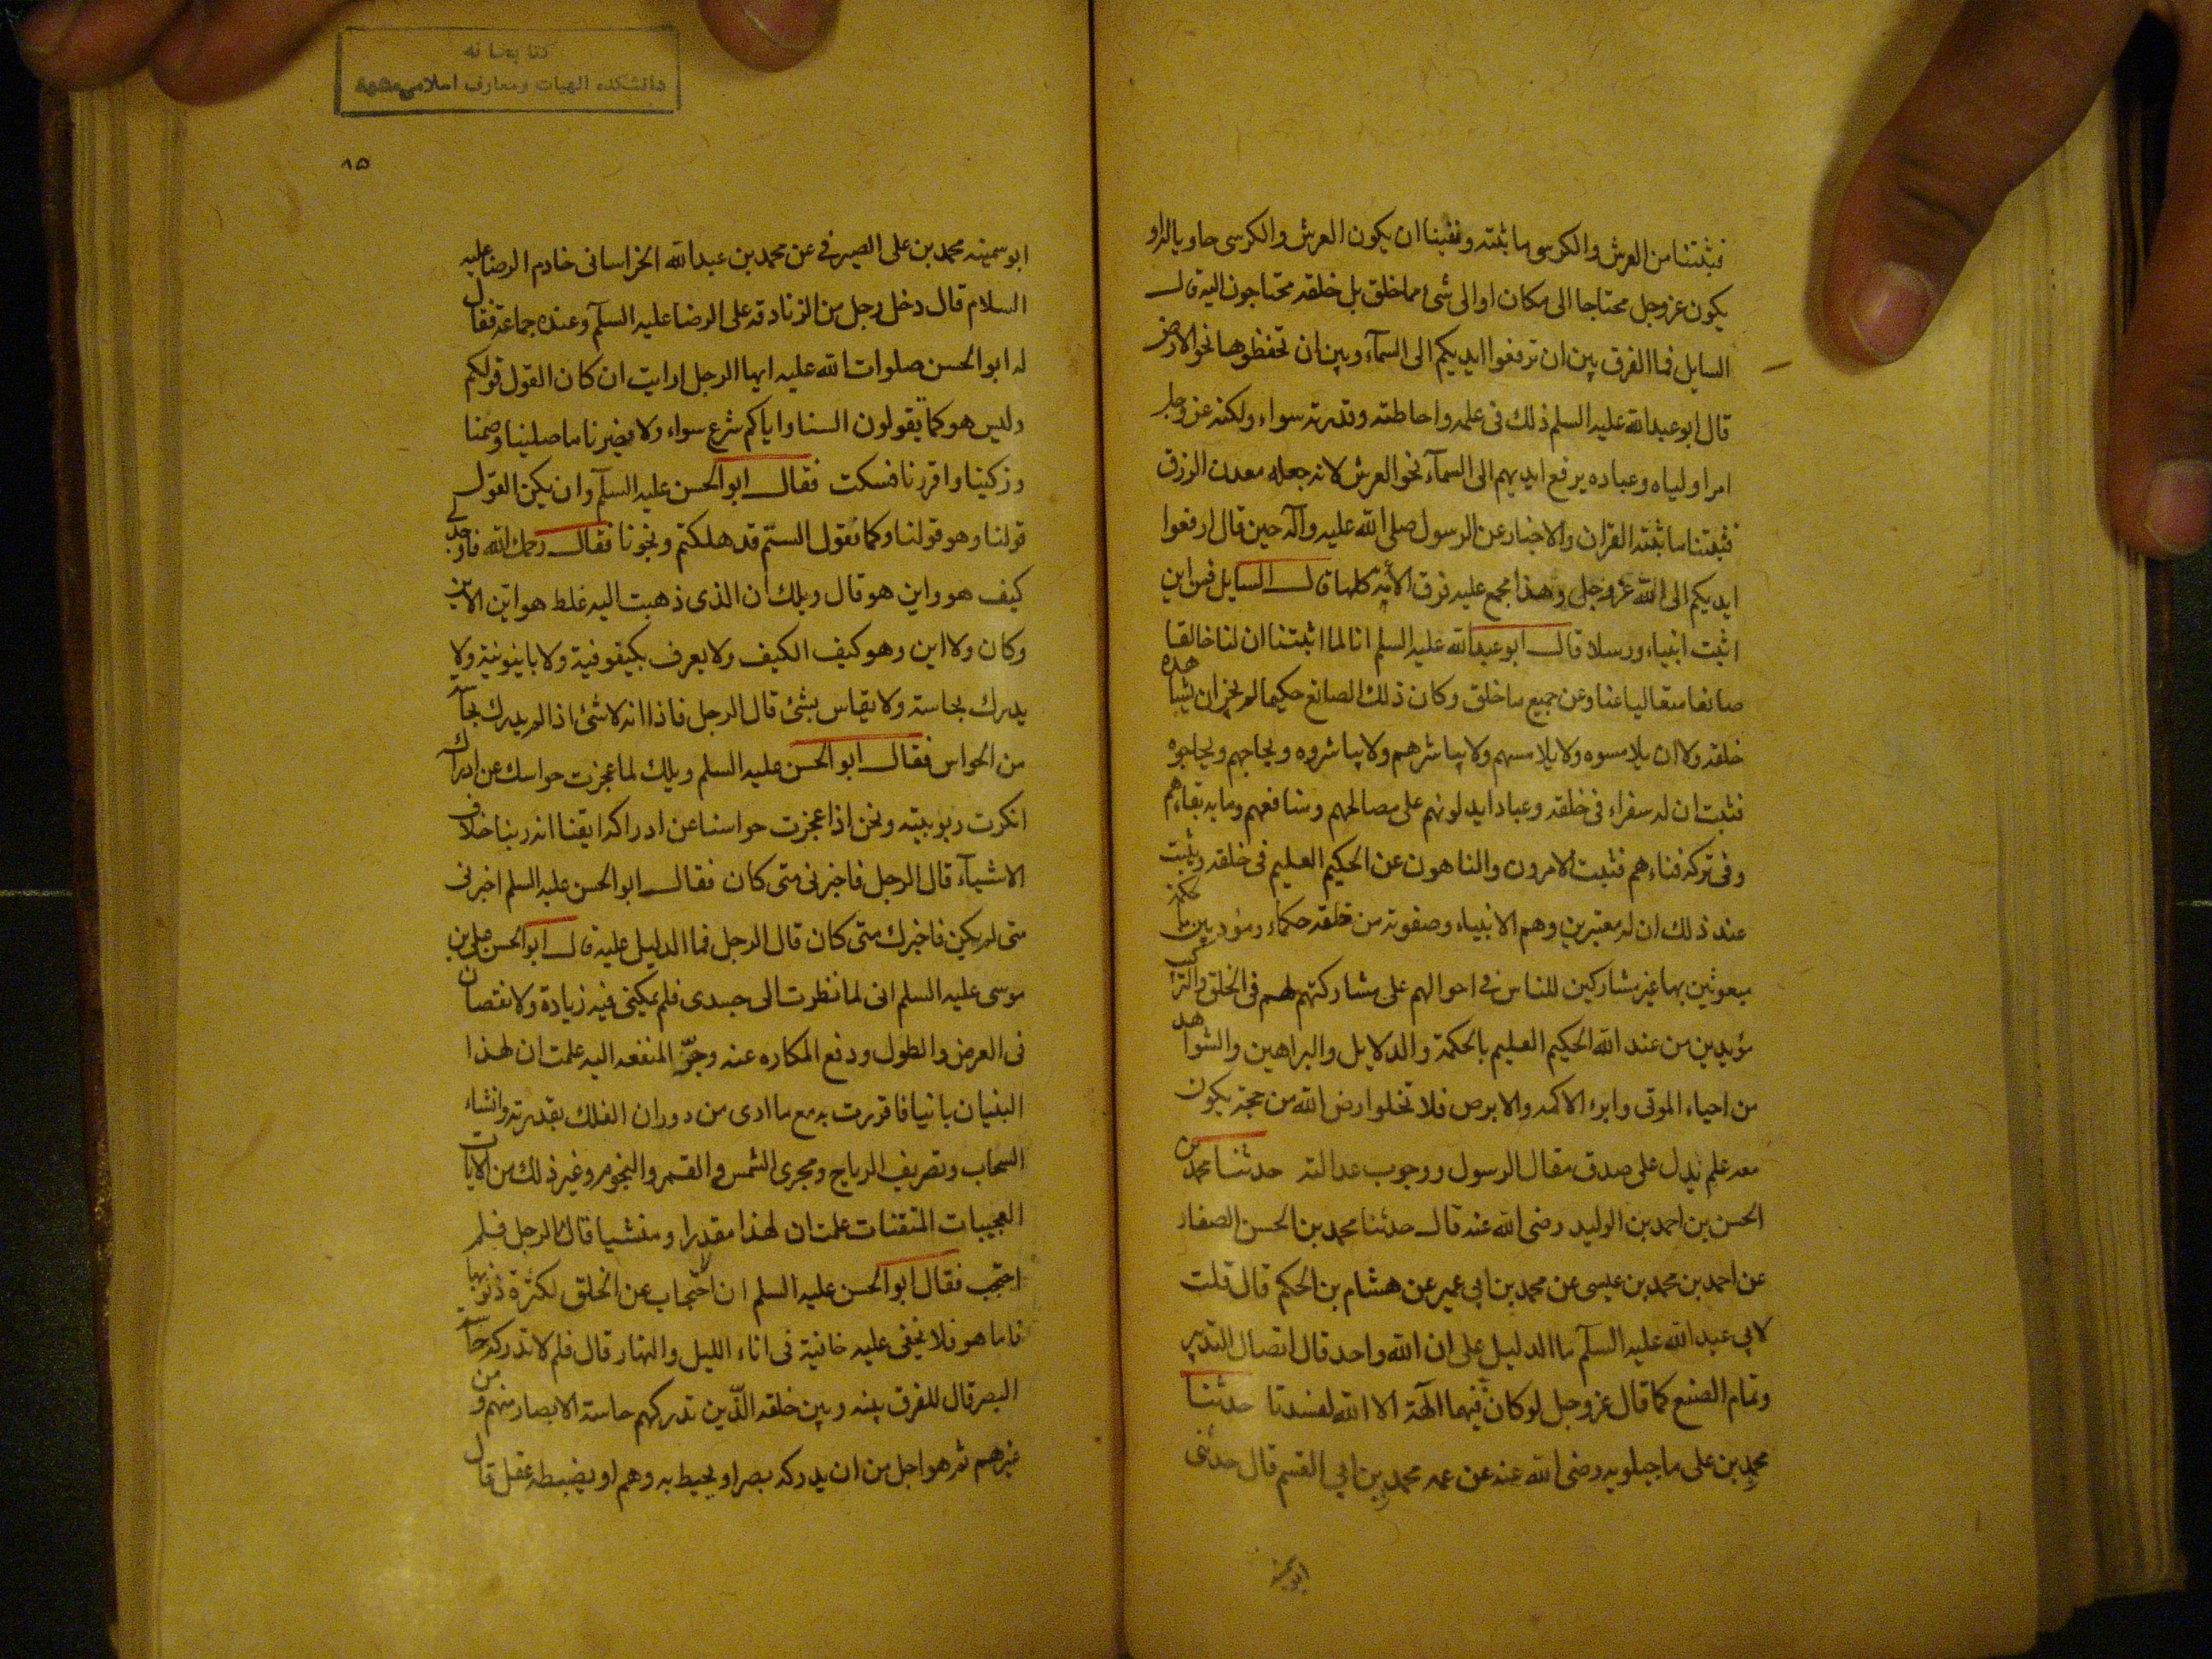 فثبتنا من العرش والكرسى ما ثبته ونفينا ان يكون العرش والكرسى حاويا له او
يكون عز وجل محتاجا الى مكان او الى شئ مما خلق بل خلقه محتاجون اليه قال
السايل فما الفرق بين ان ترفعوا ايديكم الى السمآء وبين ان تخفظوها نحو الارض
قال ابو عبد الله عليه السلم ذلك فى علمه واحاطته وقدرته سواء ولكنه عز وجل
امر اولياه وعباده يرفع ايديهم الى السمآء نحو العرش لانه جعله معدن الرزق
فثبتنا ما ثبته القران والاخبار عن الرسول صلى الله عليه وآله حين قال ارفعوا
ايديكم الى الله عز وجل وهذا مجمع عليه فرق الامّة كلها قال السايل فمن اين
اثبت انبياء ورسلا قال ابو عبد الله عليه السلم انا لما اثبتنا ان لنا خالقا
صانعا متعاليا عنا وعن جميع ما خلق وكان ذلك الصانع حكيما لم يجز ان يشاهده
خلقه ولا ان يلامسوه ولا يلامسهم ولا يباشرهم ولا يباشروه ويحاجهم ويحاجوه
فثبت ان له سفراء فى خلقه وعبادا يدلونهم على مصالحهم ومنافعهم وما به بقاءهم
وفى تركه فناءهم فثبت الامرون والناهون عن الحكيم العليم فى خلقه ويثبت
عند ذلك ان له معتبرين وهم الانبياء وصفوته من خلقه حكماء مؤدبين بالحكمة
مبعوثين بها غير مشاركين للناس فى احوالهم على مشاركتهم لهم فى الخلق والتراكيب
مؤيدين من عند الله الحكيم العليم بالحكمة والدلايل والبراهين والشواهد
من احياء الموتى وابرء الاكمه والابرص فلا تخلوا ارض الله من حجة يكون
معه علم يدل على صدق مقال الرسول ووجوب عدالته حدثنا محمد بن
الحسن بن احمد بن الوليد رضى الله عنه قال حدثنا محمد بن الحسن الصفار
عن احمد بن محمد بن عيسى عن محمد بن ابى عمير عن هشام بن الحكم قال قلت
لابى عبد الله عليه السلم ما الدليل على ان الله واحد قال اتصال التدبير
وتمام الصنع كما قال عز وجل لو كان فيهما الهة الا الله لفسدتا حدثنا
محمد بن على ماجيلويه رضى الله عنه عن عمه محمد بن ابى القسم قال حدثنى
ابو سمينه
كتابخانه
دانشكده الهيات ومعارف اسلامى مشهد
٨٥
ابو سمينه محمد بن على الصيرفى عن محمد بن عبد الله الخراسانى خادم الرضا عليه
السلام قال دخل رجل من الزنادقه على الرضا عليه السلم وعنده جماعة فقال
له ابو الحسن صلوات الله عليه ايها الرجل ارايت ان كان القول قولكم
وليس هو كما يقولون السنا واياكم شرع سواء ولا يضرنا ما صلينا وصمنا
وزكينا واقررنا فسكت فقال ابو الحسن عليه السلم وان يكن القول
قولنا وهو قولنا وكما نقول الستم قد هلكتم ونجونا فقال رحمك الله فاوجدنى
كيف هو واين هو قال ويلك ان الذى ذهبت اليه غلط هو اين الاين
وكان ولا اين وهو كيف الكيف ولا يعرف بكيفوفية ولا باينونية ولا
يدرك بحاسة ولا يقاس بشئ قال الرجل فاذا انه لا شئ اذا لم يدرك بحآسة
من الحواس فقال ابو الحسن عليه السلم ويلك لما عجزت حواسك عن ادراكه
انكرت ربوبيته ونحن اذا عجزت حواسنا عن ادراكه ايقنا انه ربنا خلاف
الاشيآء قال الرجل فاخبرنى متى كان فقال ابو الحسن عليه السلم اخبرنى
متى لم يكن فاخبرك متى كان قال الرجل فما الدليل عليه قال ابو الحسن على بن
موسى عليه السلم انى لما نظرت الى جسدى فلم يمكنى فيه زيادة ولا نقصان
فى العرض والطول ودفع المكاره عنه وجرّ المنفعه اليه علمت ان لهذا
البنيان بانيا فاقررت به مع ما ادى من دوران الفلك بقدرته وانشاء
السحاب وتصريف الرياح ومجرى الشمس والقمر والنجوم وغير ذلك من الايات
العجيبات المتقنات علمت ان لهذا مقدرا ومنشيا قال الرجل فلم
احتجب فقال ابو الحسن عليه السلم ان الاحتجاب عن الخلق لكثرة ذنوبها
فاما هو فلا يخفى عليه خافية فى اناء الليل والنهار قال فلم لا تدركه حآسة
البصر قال للفرق بينه وبين خلقه الذّين تدركهم حاسة الابصار منهم ومن
غيرهم ثم هو اجل من ان يدركه بصر او يحيط به وهم او يضبطه عقل قال